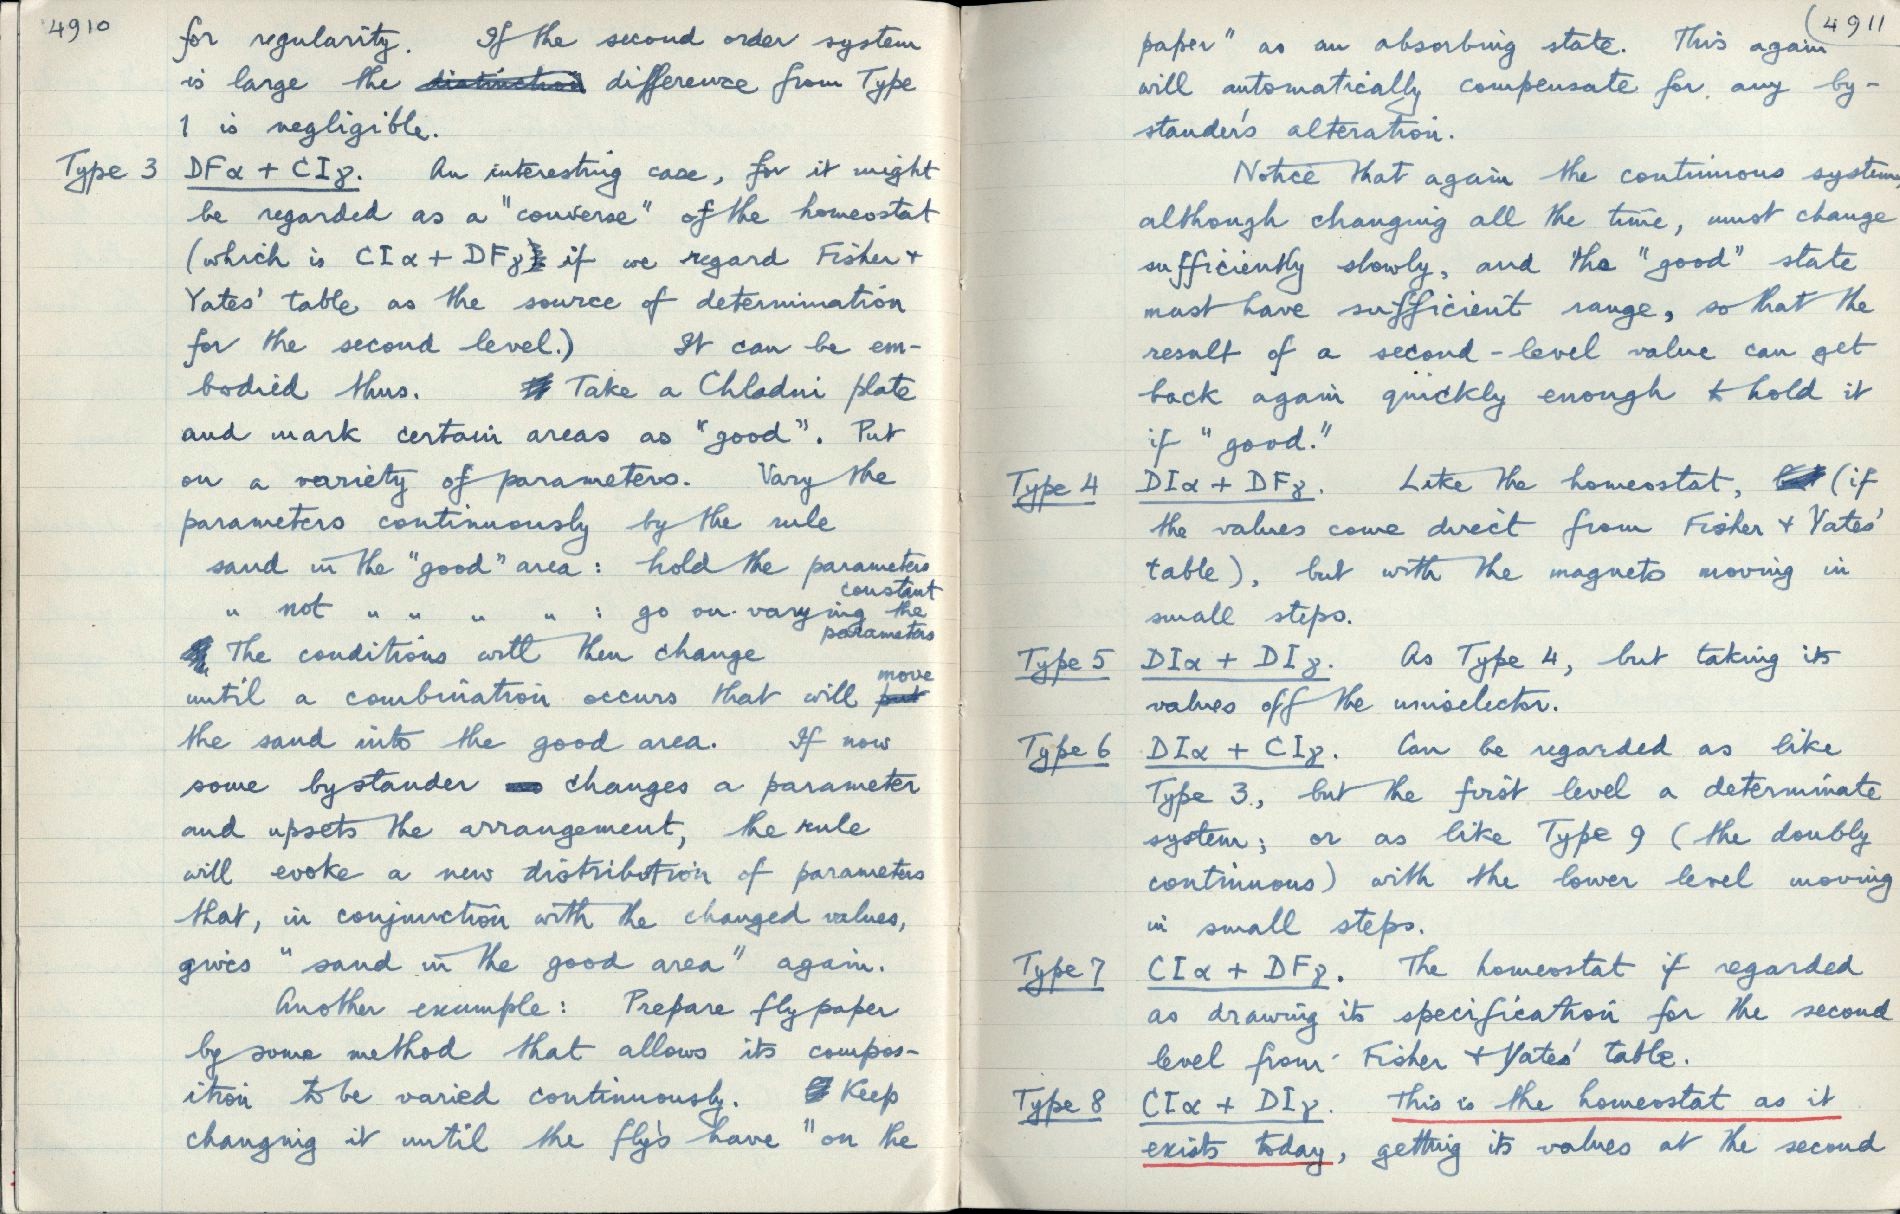 4910
for regularity. If the second order system
is large the distinction difference from Type
1 is negligible.
Type 3 DFα + CIγ. An interesting case, for it might
be regarded as a "converse" of the homeostat
(which is CIα + DFγ, if we regard Fisher +
Yates' table as the source of determination
for the second level.) It can be em-
bodied thus. Take a Chladni plate
and mark certain areas as "good". Put
on a variety of parameters. Vary the
parameters continuously by the rule
sand in the "good" area: hold the parameters
constant
" not " " " " : go on varying the
parameters
The conditions will then change
move
until a combination occurs that will put
the sand into the good area. If now
some bystander changes a parameter
and upsets the arrangement, the rule
will evoke a new distribution of parameters
that, in conjunction with the changed values,
gives "sand in the good area" again.
Another example: Prepare flypaper
by some method that allows its compos-
ition to be varied continuously. Keep
changing it until the fly's have "on the
(4911
paper" as an absorbing state. This again
will automatically compensate for any by-
stander's alteration.
Notice that again the continuous system
although changing all the time, must change
sufficiently slowly, and the "good" state
must have sufficient range, so that the
result of a second-level value can get
back again quickly enough to hold it
if "good."
Type 4 DIα + DFγ. Like the homeostat, but (if
the values come direct from Fisher + Yates'
table), but with the magnets moving in
small steps.
Type 5 DIα + DIγ. As Type 4, but taking its
values off the uniselector.
Type 6 DIα + CIγ. Can be regarded as like
Type 3, but the first level a determinate
system; or as like Type 9 (the doubly
continuous) with the lower level moving
in small steps.
Type 7 CIα + DFγ. The homeostat if regarded
as drawing its specification for the second
level from Fisher + Yates' table.
Type 8 CIα + DIγ. This is the homeostat as it
exists today, getting its values at the second